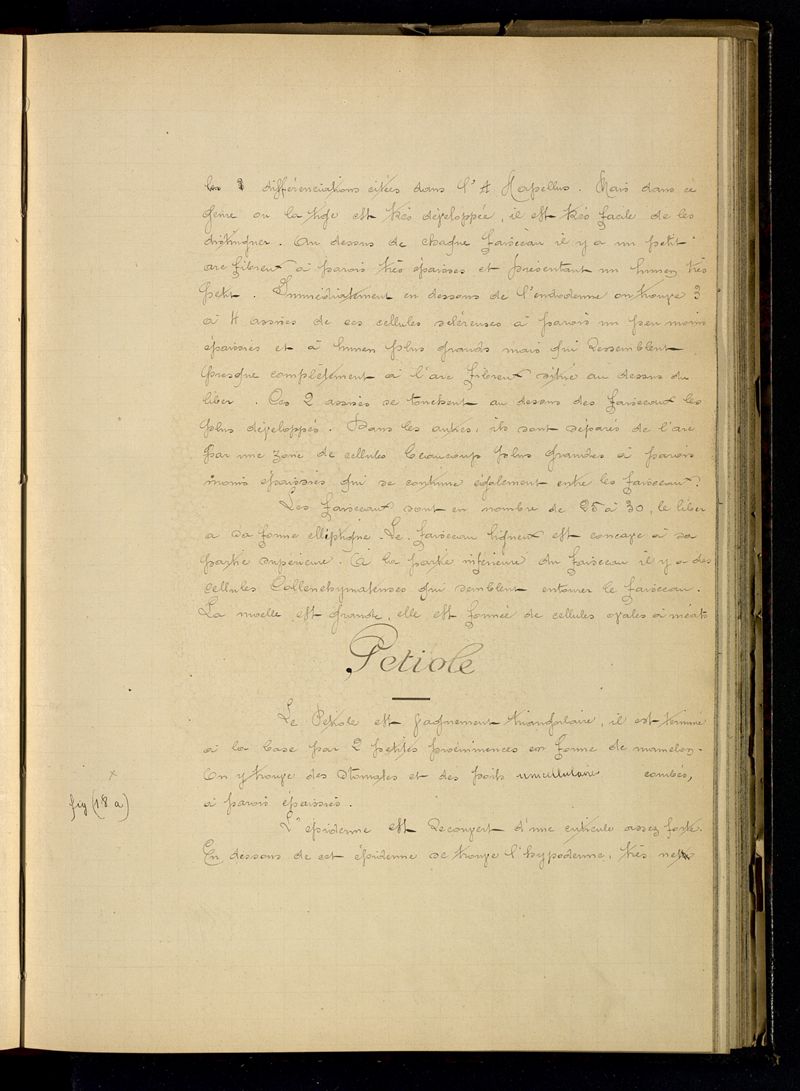 les 2 différenciations citées dans l'A Napellus. Mais dans ce
genre ou la tige est très développée, il est très facile de les
distinguer. Au dessus de chaque faisceau il y a un petit
arc fibreux à parois très épaisses et présentant un lumen très
petit. Immédiatement en dessous de l'endoderme on trouve 3
à 4 assises de ces cellules scléreuses à parois un peu moins
épaissies et à lumen plus grands mais qui ressemblent
presque complètement à l'arc fibreux situé au dessus du
liber. Ces 2 assises se touchent au dessus des faisceaux les
plus développés. Dans les autres, ils sont séparés de l'arc
par une zone de cellules beaucoup plus grandes à parois
moins épaissies qui se continue également entre les faisceaux.
Les faisceaux sont en nombre de 25 à 30, le liber
a sa forme elliptique. Le faisceau ligneux est concave à sa
partie supérieure. A la partie inférieure du faisceau il y a des
cellules Collenchymateuses qui semblent entourer le faisceau.
La moelle est grande, elle est formée de cellules ovales à méats
Petiole
Le Pétiole est vaguement triangulaire, il est terminé
à la base par 2 petites proéminences en forme de mamelon.
On y trouve des stomates et des poils unicellulaire combés,
fig (18 a)
à parois épaissies.
L'épiderme est recouvert d'une cuticule assez forte.
En dessous de cet épiderme se trouve l'hypoderme, très net